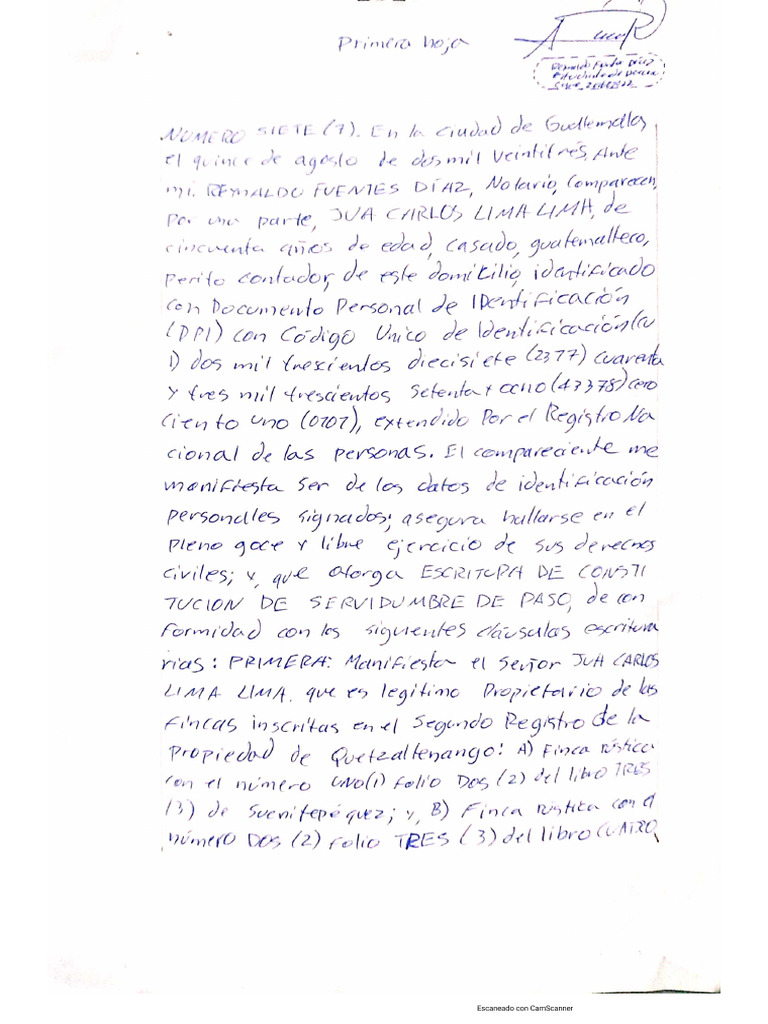 Primera hoja
Reynaldo Fuentes Díaz
Estudiante de
NUMERO SIETE (7). En la ciudad de Guatemala,
el quince de agosto de dos mil veintitrés, Ante
mi. REYNALDO FUENTES DÍAZ, Notario, Comparecen,
Por una parte, JUA CARLOS LIMA LIMA, de
cincuenta años de edad, casado, guatemalteco,
perito contador, de este domicilio, identificado
con Documento Personal de IDentificación
(DPI) con Código Unico de Identificación (CU
I) dos mil trescientos diecisiete (2377) cuarenta
y tres mil trescientos setenta y ocho (43378) cero
ciento uno (0101), extendido Por el Registro Na
cional de las personas. El compareciente me
manifiesta ser de los datos de identificación
personales signados; asegura hallarse en el
pleno goce y libre ejercicio de sus derechos
civiles; y, que otorga ESCRITURA DE CONSTI
TUCION DE SERVIDUMBRE DE PASO, de con
formidad con las siguientes cláusulas escritura
rias: PRIMERA: Manifiesta el señor JUA CARLOS
LIMA LIMA. que es legítimo Propietario de las
fincas inscritas en el Segundo Registro de la
Propiedad de Quetzaltenango: A) Finca rústica
con el número UNO(1) folio DOS (2) del libro TRES
(3) de Suchitepéquez; y, B) Finca rústica con el
número DOS (2) folio TRES (3) del libro CUATRO
Escaneado con CamScanner